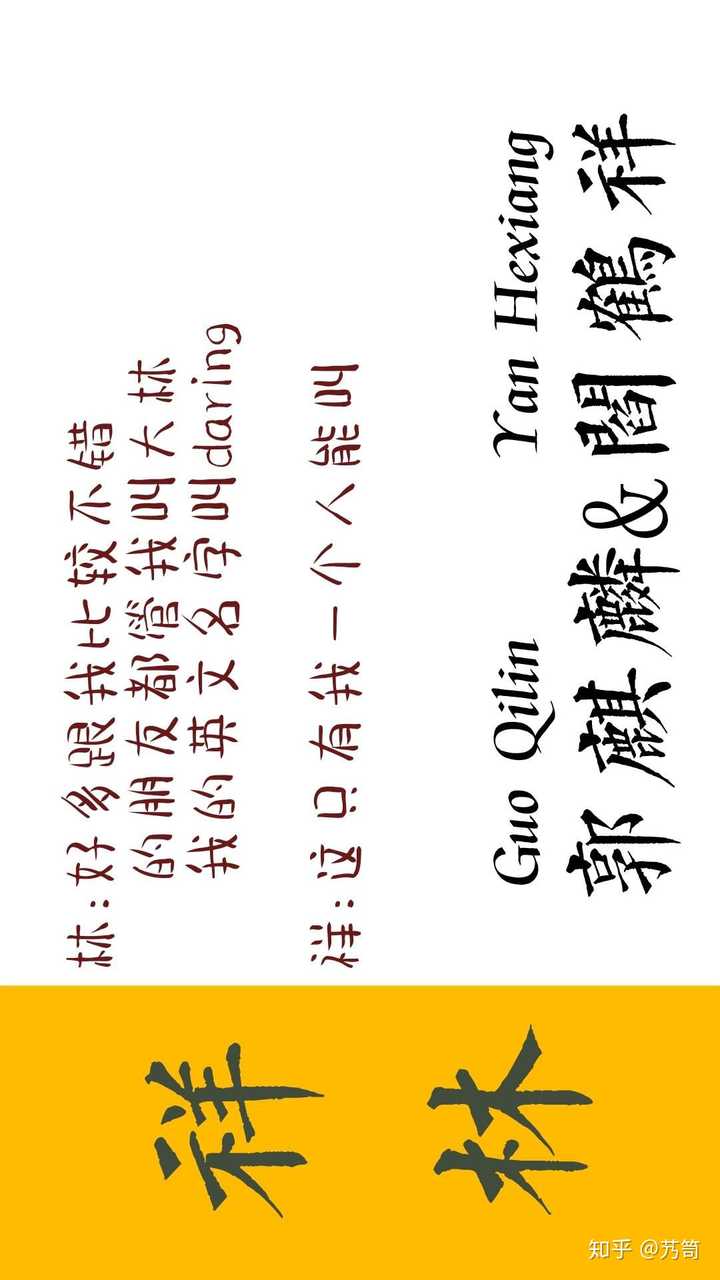 祥
林
林:好多跟我比较不错
的朋友都管我叫大林
我的英文名字叫daring
祥:这只有我一个人能叫
Guo Qilin Yan Hexiang
郭麒麟&閻鶴祥
知乎 @艿笥